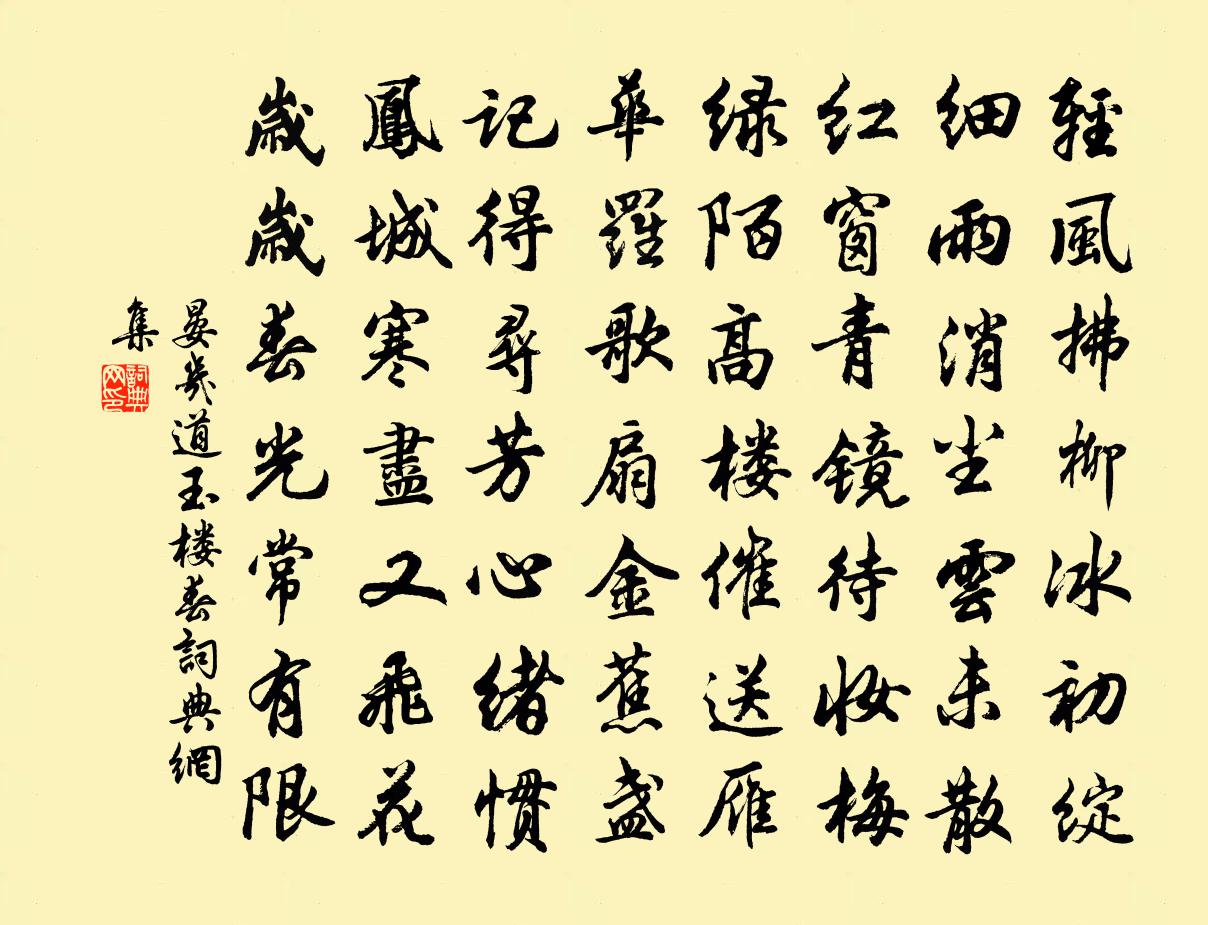 輕風拂柳冰初綻
细雨消尘雲未散
红窗青镜待妆梅
绿陌高楼催送雁
華羅歌扇金蕉盏
记得尋芳心绪惯
鳳城寒盡又飛花
歲歲春光常有限
晏幾道玉楼春詞典網
集
詞典
网印